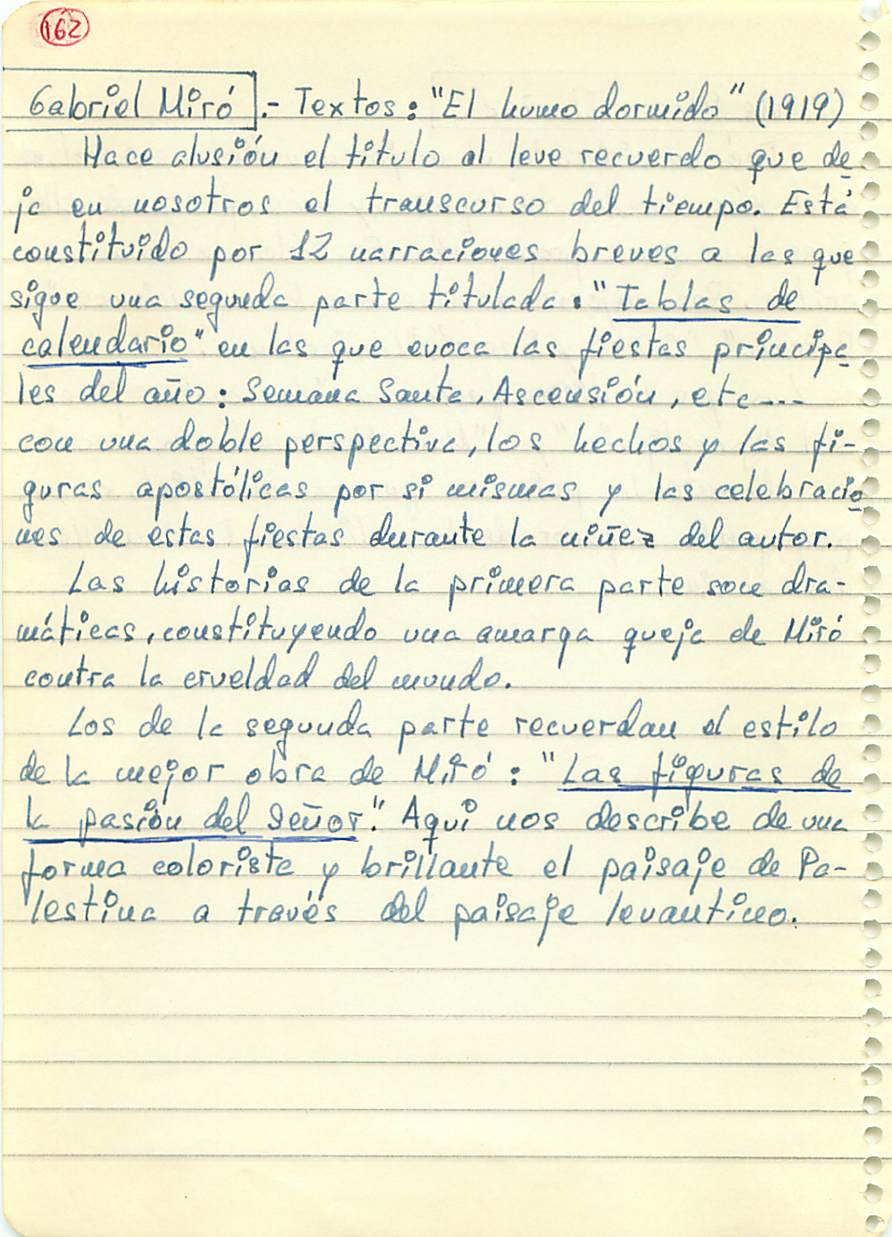 162
Gabriel Miró.- Textos: "El humo dormido" (1919)
Hace alusión el título al leve recuerdo que de
ja en nosotros el transcurso del tiempo. Está
constituido por 12 narraciones breves a las que
sigue una segunda parte titulada: "Tablas de
calendario" en las que evoca las fiestas principa
les del año: Semana Santa, Ascensión, etc....
con una doble perspectiva, los hechos y las fi-
guras apostólicas por si mismas y las celebracio
nes de estas fiestas durante la niñez del autor.
Las historias de la primera parte son dra-
máticas, constituyendo una amarga queja de Miró
contra la crueldad del mundo.
Los de la segunda parte recuerdan el estilo
de la mejor obra de Miró: "Las figuras de
la pasión del Señor". Aquí nos describe de una
forma colorista y brillante el paisaje de Pa-
lestina a través del paisaje levantino.